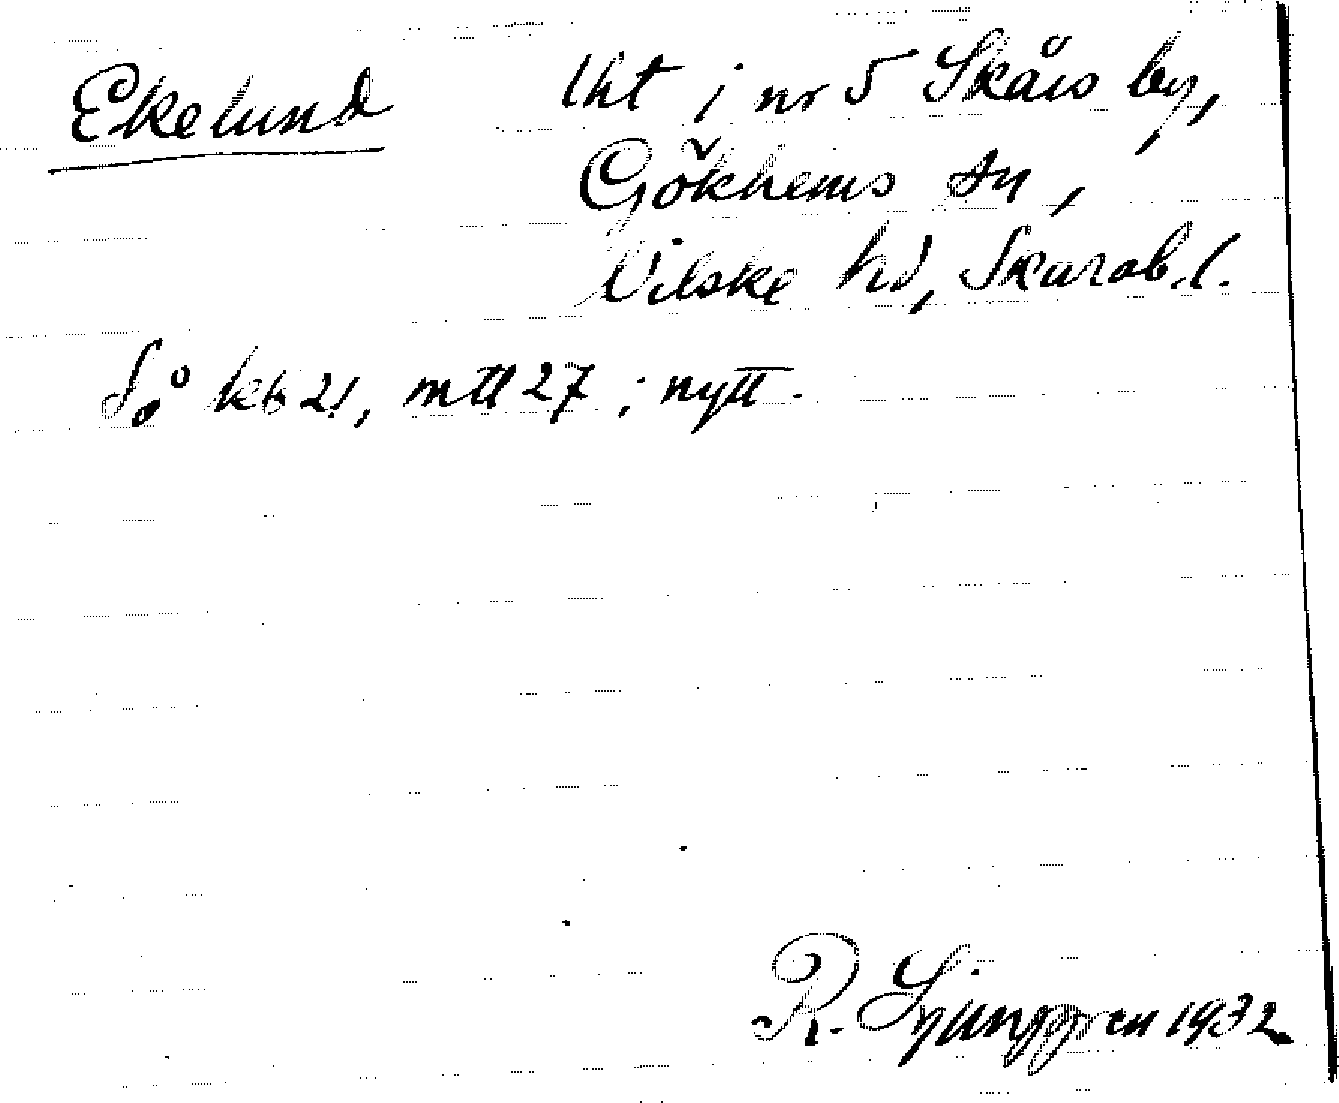 Ekelund lht i nr 5 Skårs by,
Gökhems sn,
Vilske hd, Skarab. l.
Så kb 21, mtl 27; nytt.
R. Ljunggren 1932